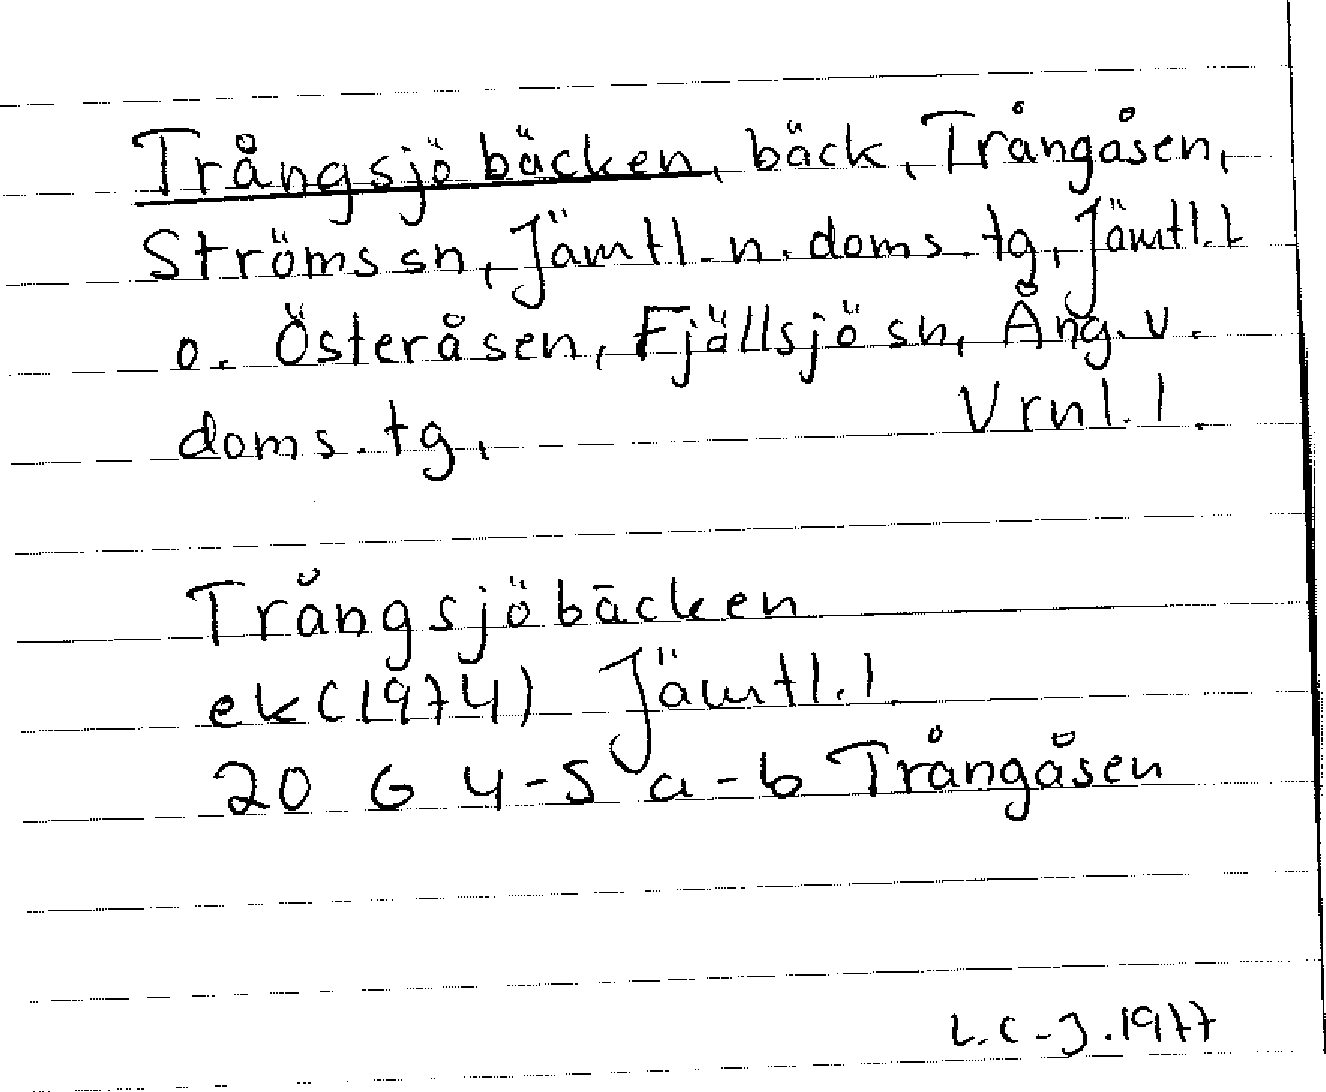 Trångsjöbäcken, bäck, Trångåsen,
Ströms sn, Jämtl. n. doms. tg, Jämtl. l
o. Österåsen, Fjällsjö sn, Ång. v.
doms. tg, Vrnl. l.
Trångsjöbäcken
ek (1974) Jämtl. l
20 G 4-5 a-b Trångåsen
L. C-J. 1977